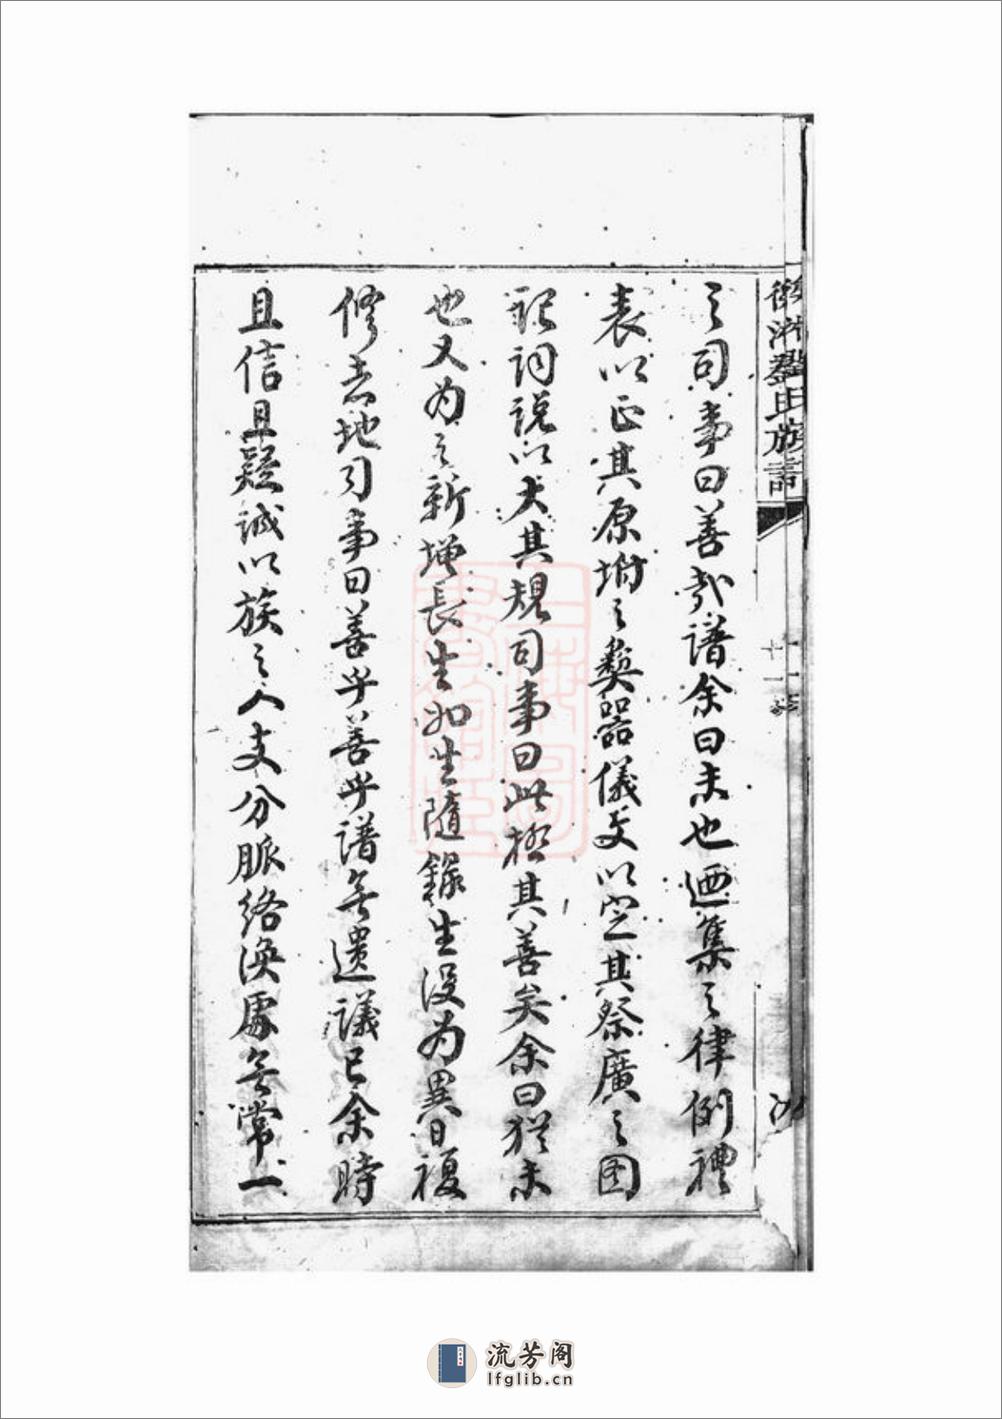 之司事曰善哉譜余曰未也迺集之律例禮
表以正其原坿之彜器儀文以定其祭廣之图
訓词説以大其規司事曰此極其善矣余曰猶未
也又为之新增長生如生隨錄生没为異日複
修志地司事曰善乎善乎譜無遺議已余時
且信且疑誠以族之人支分脈络渙處無常一
氏族譜
十一
流芳阁
lfglib.cn